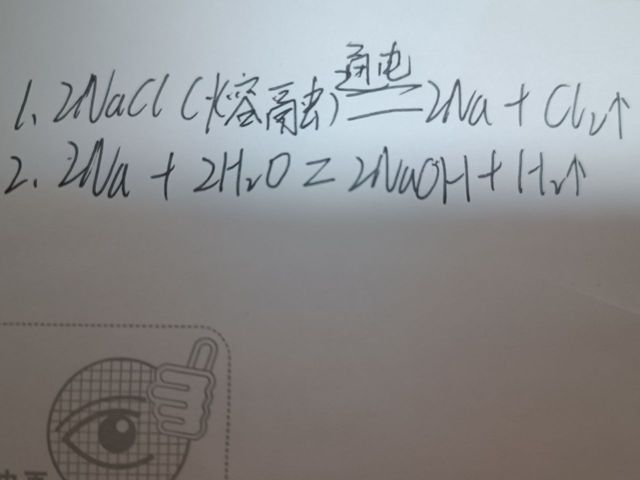 1. 2NaCl(熔融) 通电 = 2Na + Cl₂↑
2. 2Na + 2H₂O = 2NaOH + H₂↑